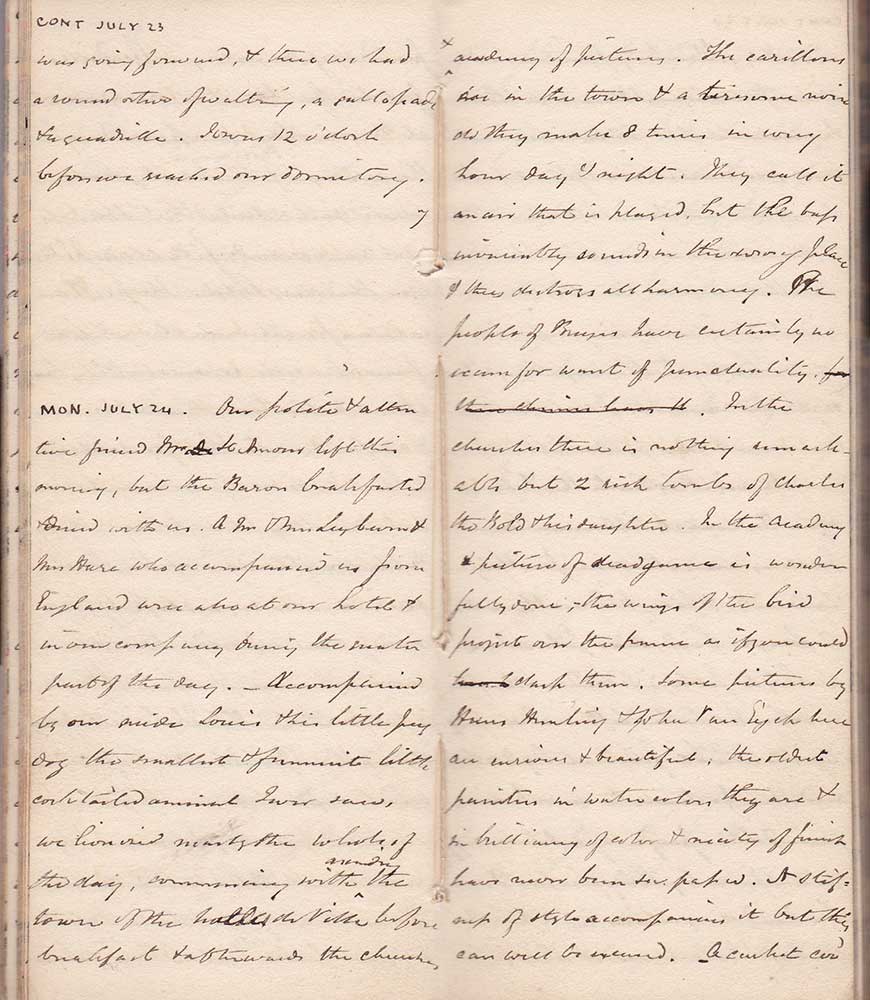 CONT JULY 23
was going forward, & there we had
a round or two of waltzing, a gallopade
& a quadrille. It was 12 o'clock
before we reached our dormitory.
MON. JULY 24. Our polite & atten
tive friend Mr St Amour left this
morning, but the Baron breakfasted
& dined with us. A Mr & Mrs Leyburn &
Mrs Hare who accompanied us from
England were also at our hotel &
in our company during the greater
part of the day. – Accompanied
by our guide Louis & his little
dog the smallest & funniest little
cocktailed animal I ever saw,
we lionized nearly the whole of
the day, commencing with the ascending
tower of the halles de Ville before
breakfast & afterwards the churches
& academy of pictures. The carillons
are in the town & a tiresome noise
do they make 8 times in every
hour day & night. They call it
an air that is played, but the bass
invariably sounds in the wrong place
& thus destroys all harmony. The
people of Bruges have certainly no
excuse for want of punctuality, for
their chimes have it. In the
churches there is nothing remark-
able but 2 rich tombs of Charles
the Bold & his daughter. In the academy
a picture of dead game is wonder
fully done; the wings of the bird
project over the frame as if you could
clasp them. Some pictures by
Hans Hemling & John Van Eyck here
are curious & beautiful; the oldest
paintings in water colors they are &
in brilliancy of color & nicety of finish
have never been surpassed. A stiff-
ness of style accompanies it but this
can well be excused. A curket cov'd